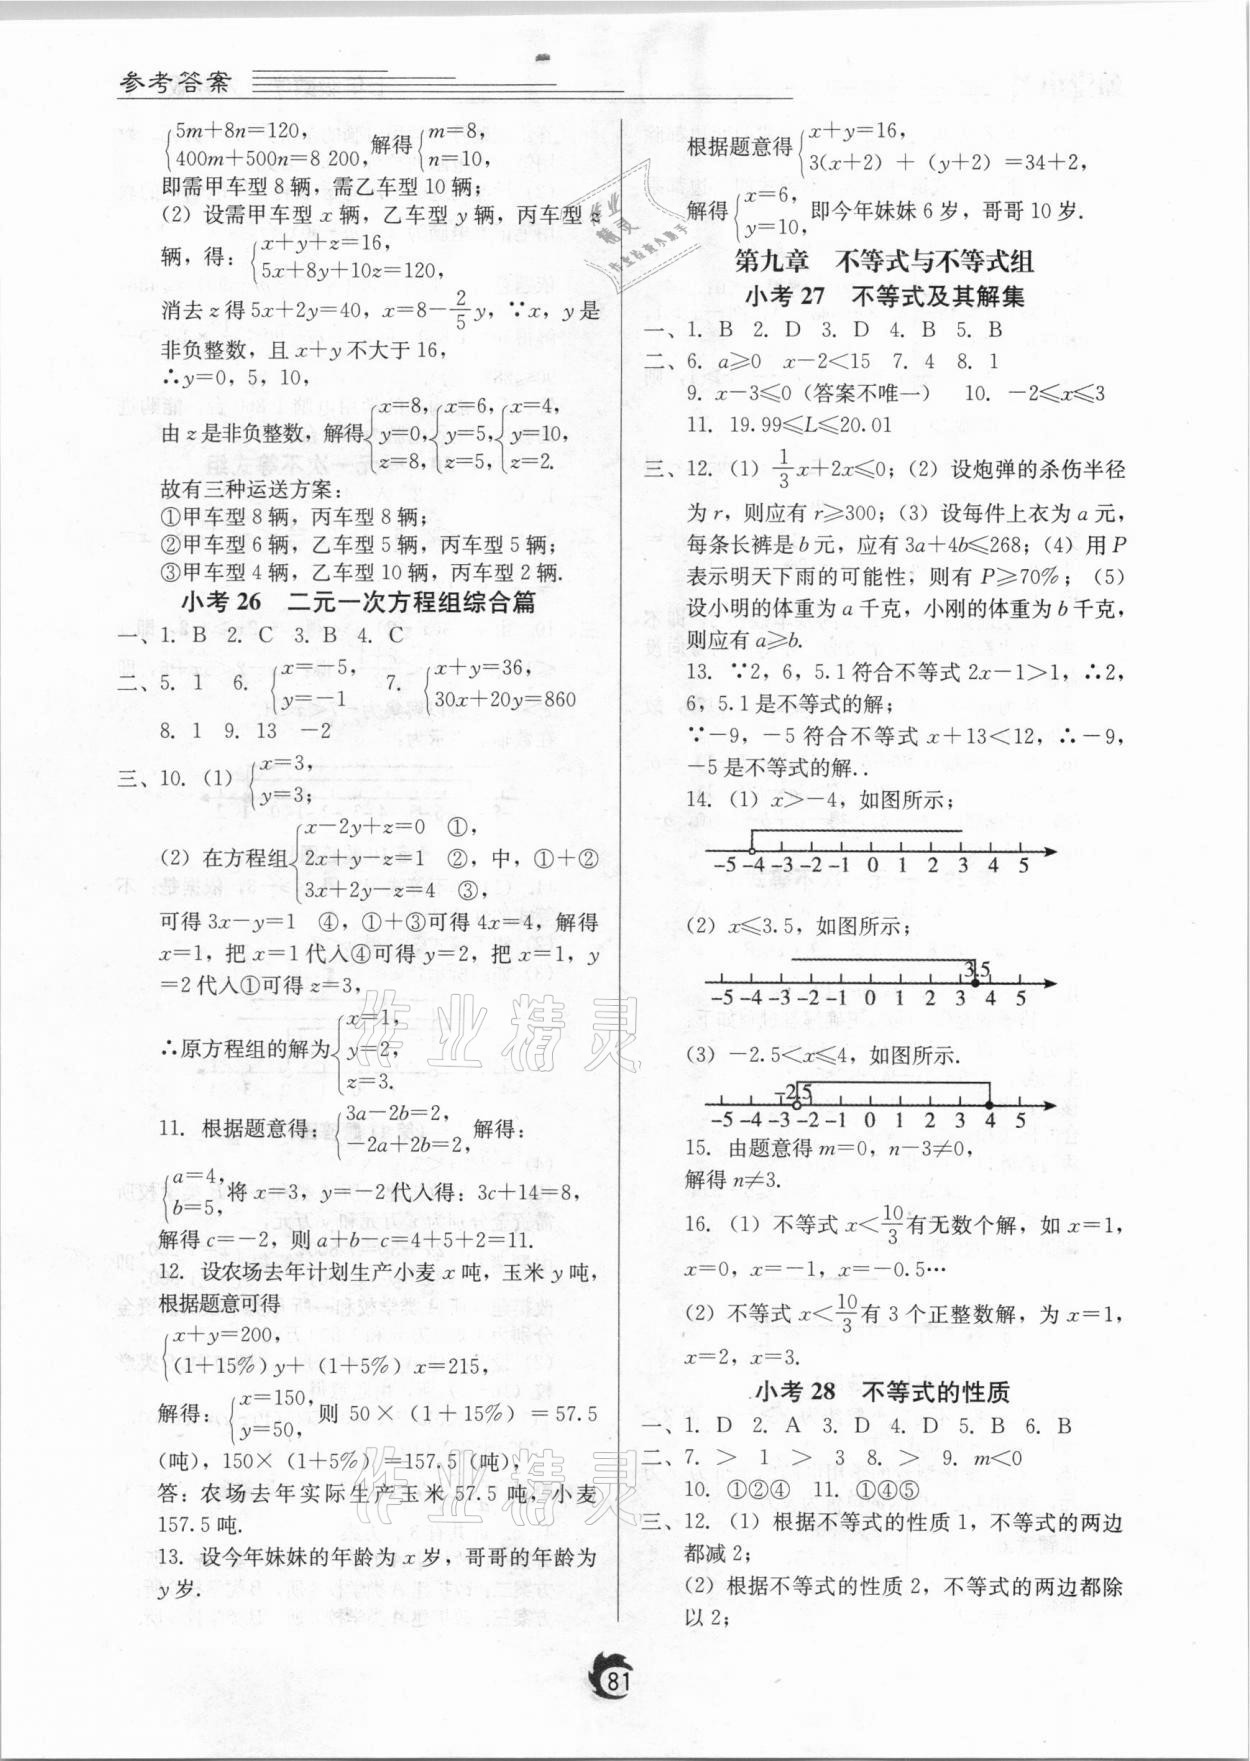 参考答案
{5m+8n=120,
400m+500n=8 200, 解得 {m=8,
n=10,
即需甲车型 8 辆，需乙车型 10 辆；
(2) 设需甲车型 x 辆，乙车型 y 辆，丙车型 z
辆，得：{x+y+z=16,
5x+8y+10z=120,
消去 z 得 5x+2y=40，x=8-2/5y，∵x，y 是
非负整数，且 x+y 不大于 16，
∴y=0，5，10，
由 z 是非负整数，解得 {x=8, {x=6, {x=4,
y=0, y=5, y=10,
z=8, z=5, z=2.
故有三种运送方案：
①甲车型 8 辆，丙车型 8 辆；
②甲车型 6 辆，乙车型 5 辆，丙车型 5 辆；
③甲车型 4 辆，乙车型 10 辆，丙车型 2 辆.
小考 26 二元一次方程组综合篇
一、1. B 2. C 3. B 4. C
二、5. 1 6. {x=-5,
y=-1 7. {x+y=36,
30x+20y=860
8. 1 9. 13 -2
三、10. (1) {x=3,
y=3;
(2) 在方程组 {x-2y+z=0 ①,
2x+y-z=1 ②，中，①+②
3x+2y-z=4 ③,
可得 3x-y=1 ④，①+③可得 4x=4，解得
x=1，把 x=1 代入④可得 y=2，把 x=1，y
=2 代入①可得 z=3，
∴原方程组的解为 {x=1,
y=2,
z=3.
11. 根据题意得：{3a-2b=2,
-2a+2b=2, 解得：
{a=4,
b=5, 将 x=3，y=-2 代入得：3c+14=8，
解得 c=-2，则 a+b-c=4+5+2=11.
12. 设农场去年计划生产小麦 x 吨，玉米 y 吨，
根据题意可得
{x+y=200,
(1+15%)y+(1+5%)x=215,
解得：{x=150,
y=50, 则 50×(1+15%)=57.5
(吨)，150×(1+5%)=157.5 (吨)，
答：农场去年实际生产玉米 57.5 吨，小麦
157.5 吨.
13. 设今年妹妹的年龄为 x 岁，哥哥的年龄为
y 岁.
根据题意得 {x+y=16,
3(x+2)+(y+2)=34+2,
解得 {x=6,
y=10, 即今年妹妹 6 岁，哥哥 10 岁.
第九章 不等式与不等式组
小考 27 不等式及其解集
一、1. B 2. D 3. D 4. B 5. B
二、6. a⩾0 x-2<15 7. 4 8. 1
9. x-3⩽0 (答案不唯一) 10. -2⩽x⩽3
11. 19.99⩽L⩽20.01
三、12. (1) 1/3x+2x⩽0；(2) 设炮弹的杀伤半径
为 r，则应有 r⩾300；(3) 设每件上衣为 a 元，
每条长裤是 b 元，应有 3a+4b⩽268；(4) 用 P
表示明天下雨的可能性，则有 P⩾70%；(5)
设小明的体重为 a 千克，小刚的体重为 b 千克，
则应有 a⩾b.
13. ∵2，6，5.1 符合不等式 2x-1>1，∴2，
6，5.1 是不等式的解；
∵-9，-5 符合不等式 x+13<12，∴-9，
-5 是不等式的解..
14. (1) x>-4，如图所示；
-5 -4 -3 -2 -1 0 1 2 3 4 5
(2) x⩽3.5，如图所示；
3.5
-5 -4 -3 -2 -1 0 1 2 3 4 5
(3) -2.5<x⩽4，如图所示.
-2.5
-5 -4 -3 -2 -1 0 1 2 3 4 5
15. 由题意得 m=0，n-3≠0，
解得 n≠3.
16. (1) 不等式 x<10/3 有无数个解，如 x=1，
x=0，x=-1，x=-0.5…
(2) 不等式 x<10/3 有 3 个正整数解，为 x=1，
x=2，x=3.
小考 28 不等式的性质
一、1. D 2. A 3. D 4. D 5. B 6. B
二、7. > 1 > 3 8. > 9. m<0
10. ①②④ 11. ①④⑤
三、12. (1) 根据不等式的性质 1，不等式的两边
都减 2；
(2) 根据不等式的性质 2，不等式的两边都除
以 2；
81
作业精灵
作业精灵
作业
精灵